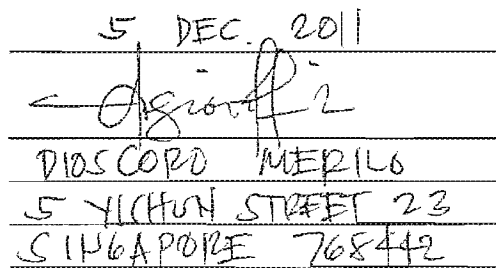 5 DEC. 2011
DIOSCORO MERILO
5 YICHUN STREET 23
SINGAPORE 768442